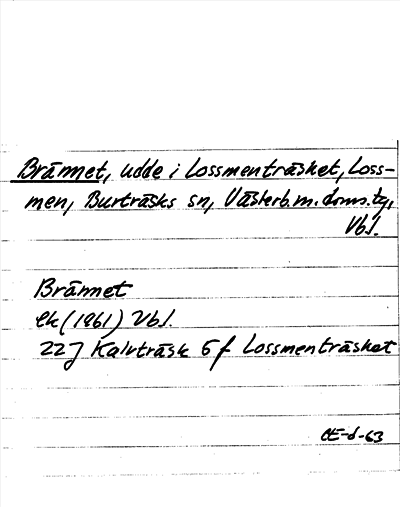 Brännet, udde i Lossmenträsket, Loss-
men, Burträsks sn, Västerb.m. doms.tg,
Vbl.
Brännet
Ek (1961) Vbl.
22J Kalvträsk 5 f Lossmenträsket
CE-d-63